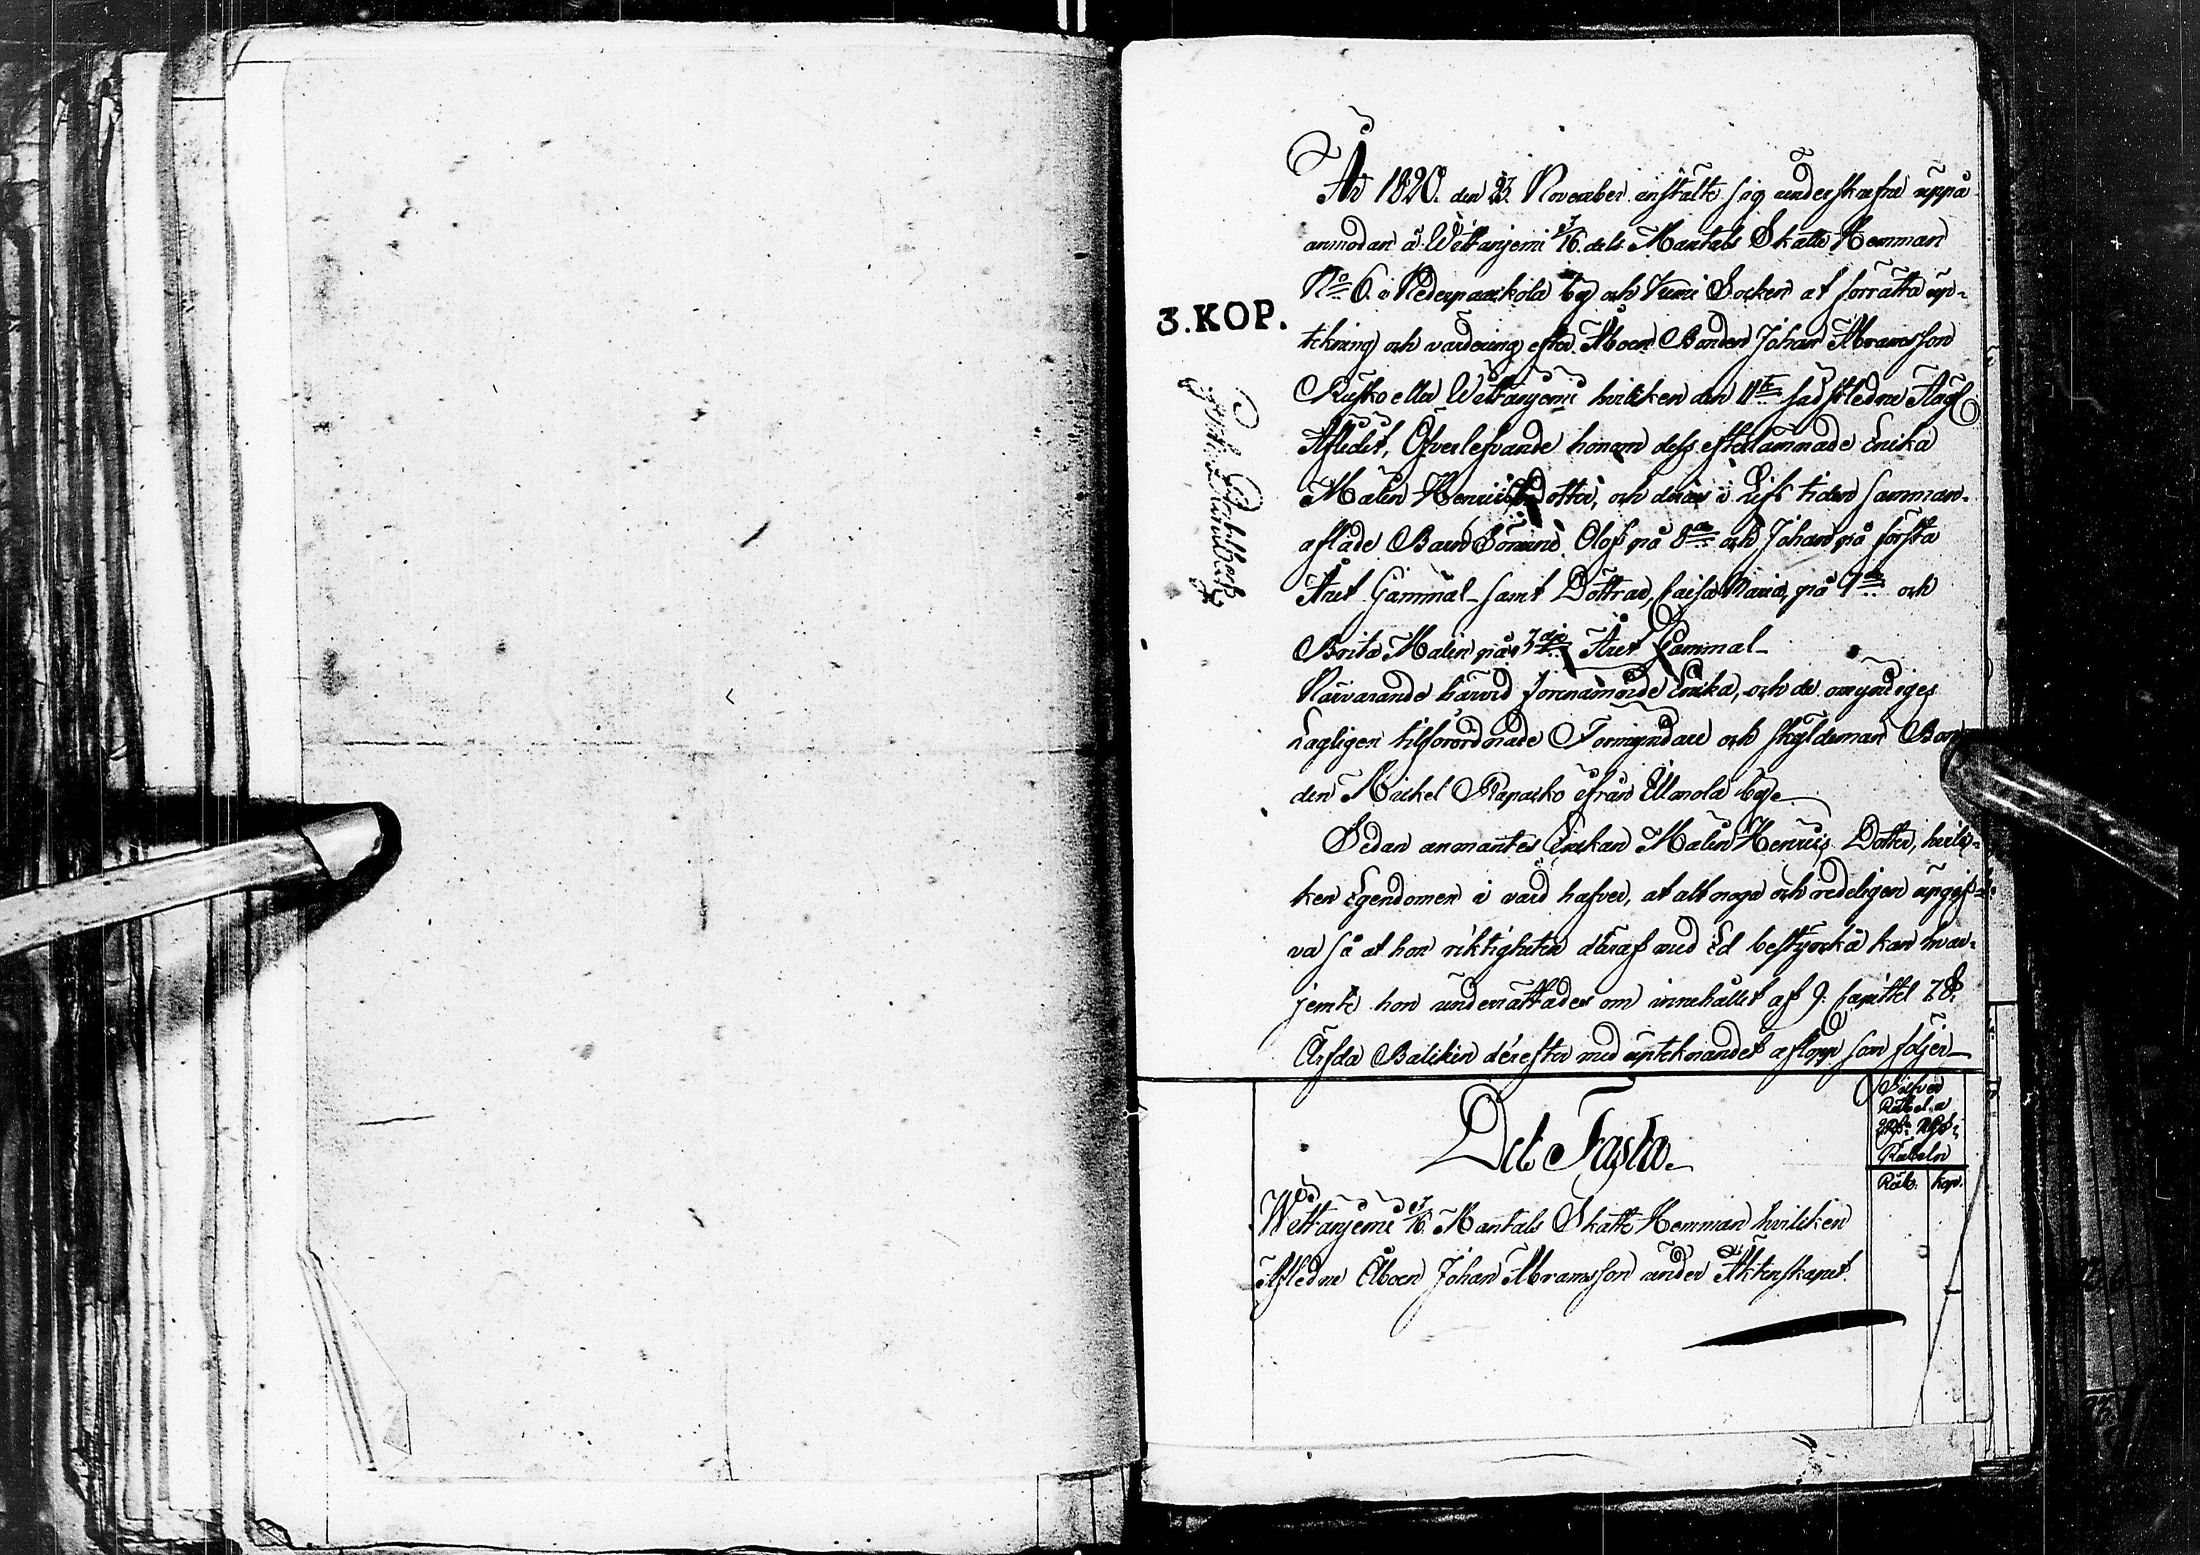 3.KOP.
År 1820. den 23. November instälte sig underskrefne uppå
anmodan å Wittanjemi 5/16. dels Mantals Skatte Hemman
No 6. i Nederpaackola by och Kumo Socken at förrätta up-
tekning och värdering efter Åboen Bonden Johan Abramsson
Rusko eller Wittanjemi hvilken den 11te sidstledne
Afledit, Öfverlefvande honom dess efterlämnade Enka
Malin Henricsdotter, och deras i Lifs tiden samman-
aflade Barn Sönerne Olof på 8de och Johan på första
Året Gammal samt Döttrar, Caisa Maria, på 7de och
Brita Malin på 3dje Året Gammal
Närvarande härvid förenämnde Enka, och de omyndiges
Lagligen tilförordnade Förmyndare och skyldeman Bon-
den Mickel Rapacko ifrån Ylianola by
Sedan anmantes Enkan Malin Henrics Dotter, hvil-
ken Egendomen i vård hafver, at alt noga och redeligen upgif-
va så at hon riktigheten däraf med Ed bestyrka kan hvar-
jemte hon underrättades om innehållet af 9. Capittel 7. §
Ärfda Balken derefter med uptekandet aflopp som följer
Silfver
Rubel a
Rubeln
Rub. kop.
Det Fasta
Wittanjemi 5/16. Mantals Skatte Hemman hvilken
Afledne Åboen Johan Abramsson under Äktenskapet